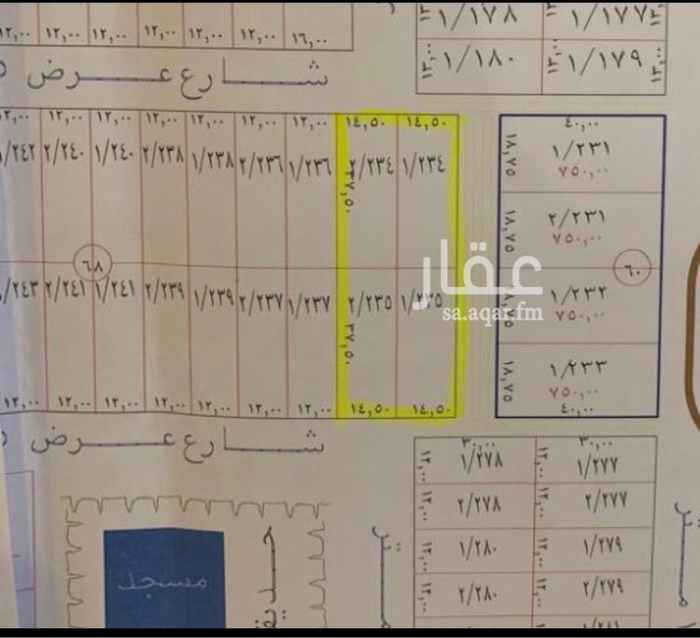 ١/١٧٨ ١/١٧٧
١٢,٠٠ ١٢,٠٠ ١٢,٠٠ ١٢,٠٠ ١٢,٠٠ ١٦,٠٠
١/١٨٠ ١/١٧٩
شارع عرض
١٢,٠٠ ١٢,٠٠ ١٢,٠٠ ١٢,٠٠ ١٢,٠٠ ١٢,٠٠ ١٤,٥٠ ١٤,٥٠ ٤٠,٠٠
٢/٢٤٠ ١/٢٤٠ ٢/٢٣٨ ١/٢٣٨ ٢/٢٣٦ ١/٢٣٦ ٢/٢٣٤ ١/٢٣٤
٣٧,٥٠
١٨,٧٥ ١/٢٣١
٧٥٠,٠٠
١٨,٧٥ ٢/٢٣١
٧٥٠,٠٠
٦٨ ٦٠
عقار
sa.aqar.fm
٢/٢٤١ ١/٢٤١ ٢/٢٣٩ ١/٢٣٩ ٢/٢٣٧ ١/٢٣٧ ٢/٢٣٥ ١/٢٣٥
٣٧,٥٠
١٨,٧٥ ١/٢٣٢
٧٥٠,٠٠
١٨,٧٥ ١/٢٣٣
٧٥٠,٠٠
١٢,٠٠ ١٢,٠٠ ١٢,٠٠ ١٢,٠٠ ١٢,٠٠ ١٢,٠٠ ١٢,٠٠ ١٤,٥٠ ١٤,٥٠ ٤٠,٠٠
شارع عرض
٣٠,٠٠ ٣٠,٠٠
١٢,٠٠ ١/٢٧٨ ١٢,٠٠ ١/٢٧٧
١٢,٠٠ ٢/٢٧٨ ١٢,٠٠ ٢/٢٧٧
١٢,٠٠ ١/٢٨٠ ١٢,٠٠ ١/٢٧٩
١٢,٠٠ ٢/٢٨٠ ١٢,٠٠ ٢/٢٧٩
مسجد